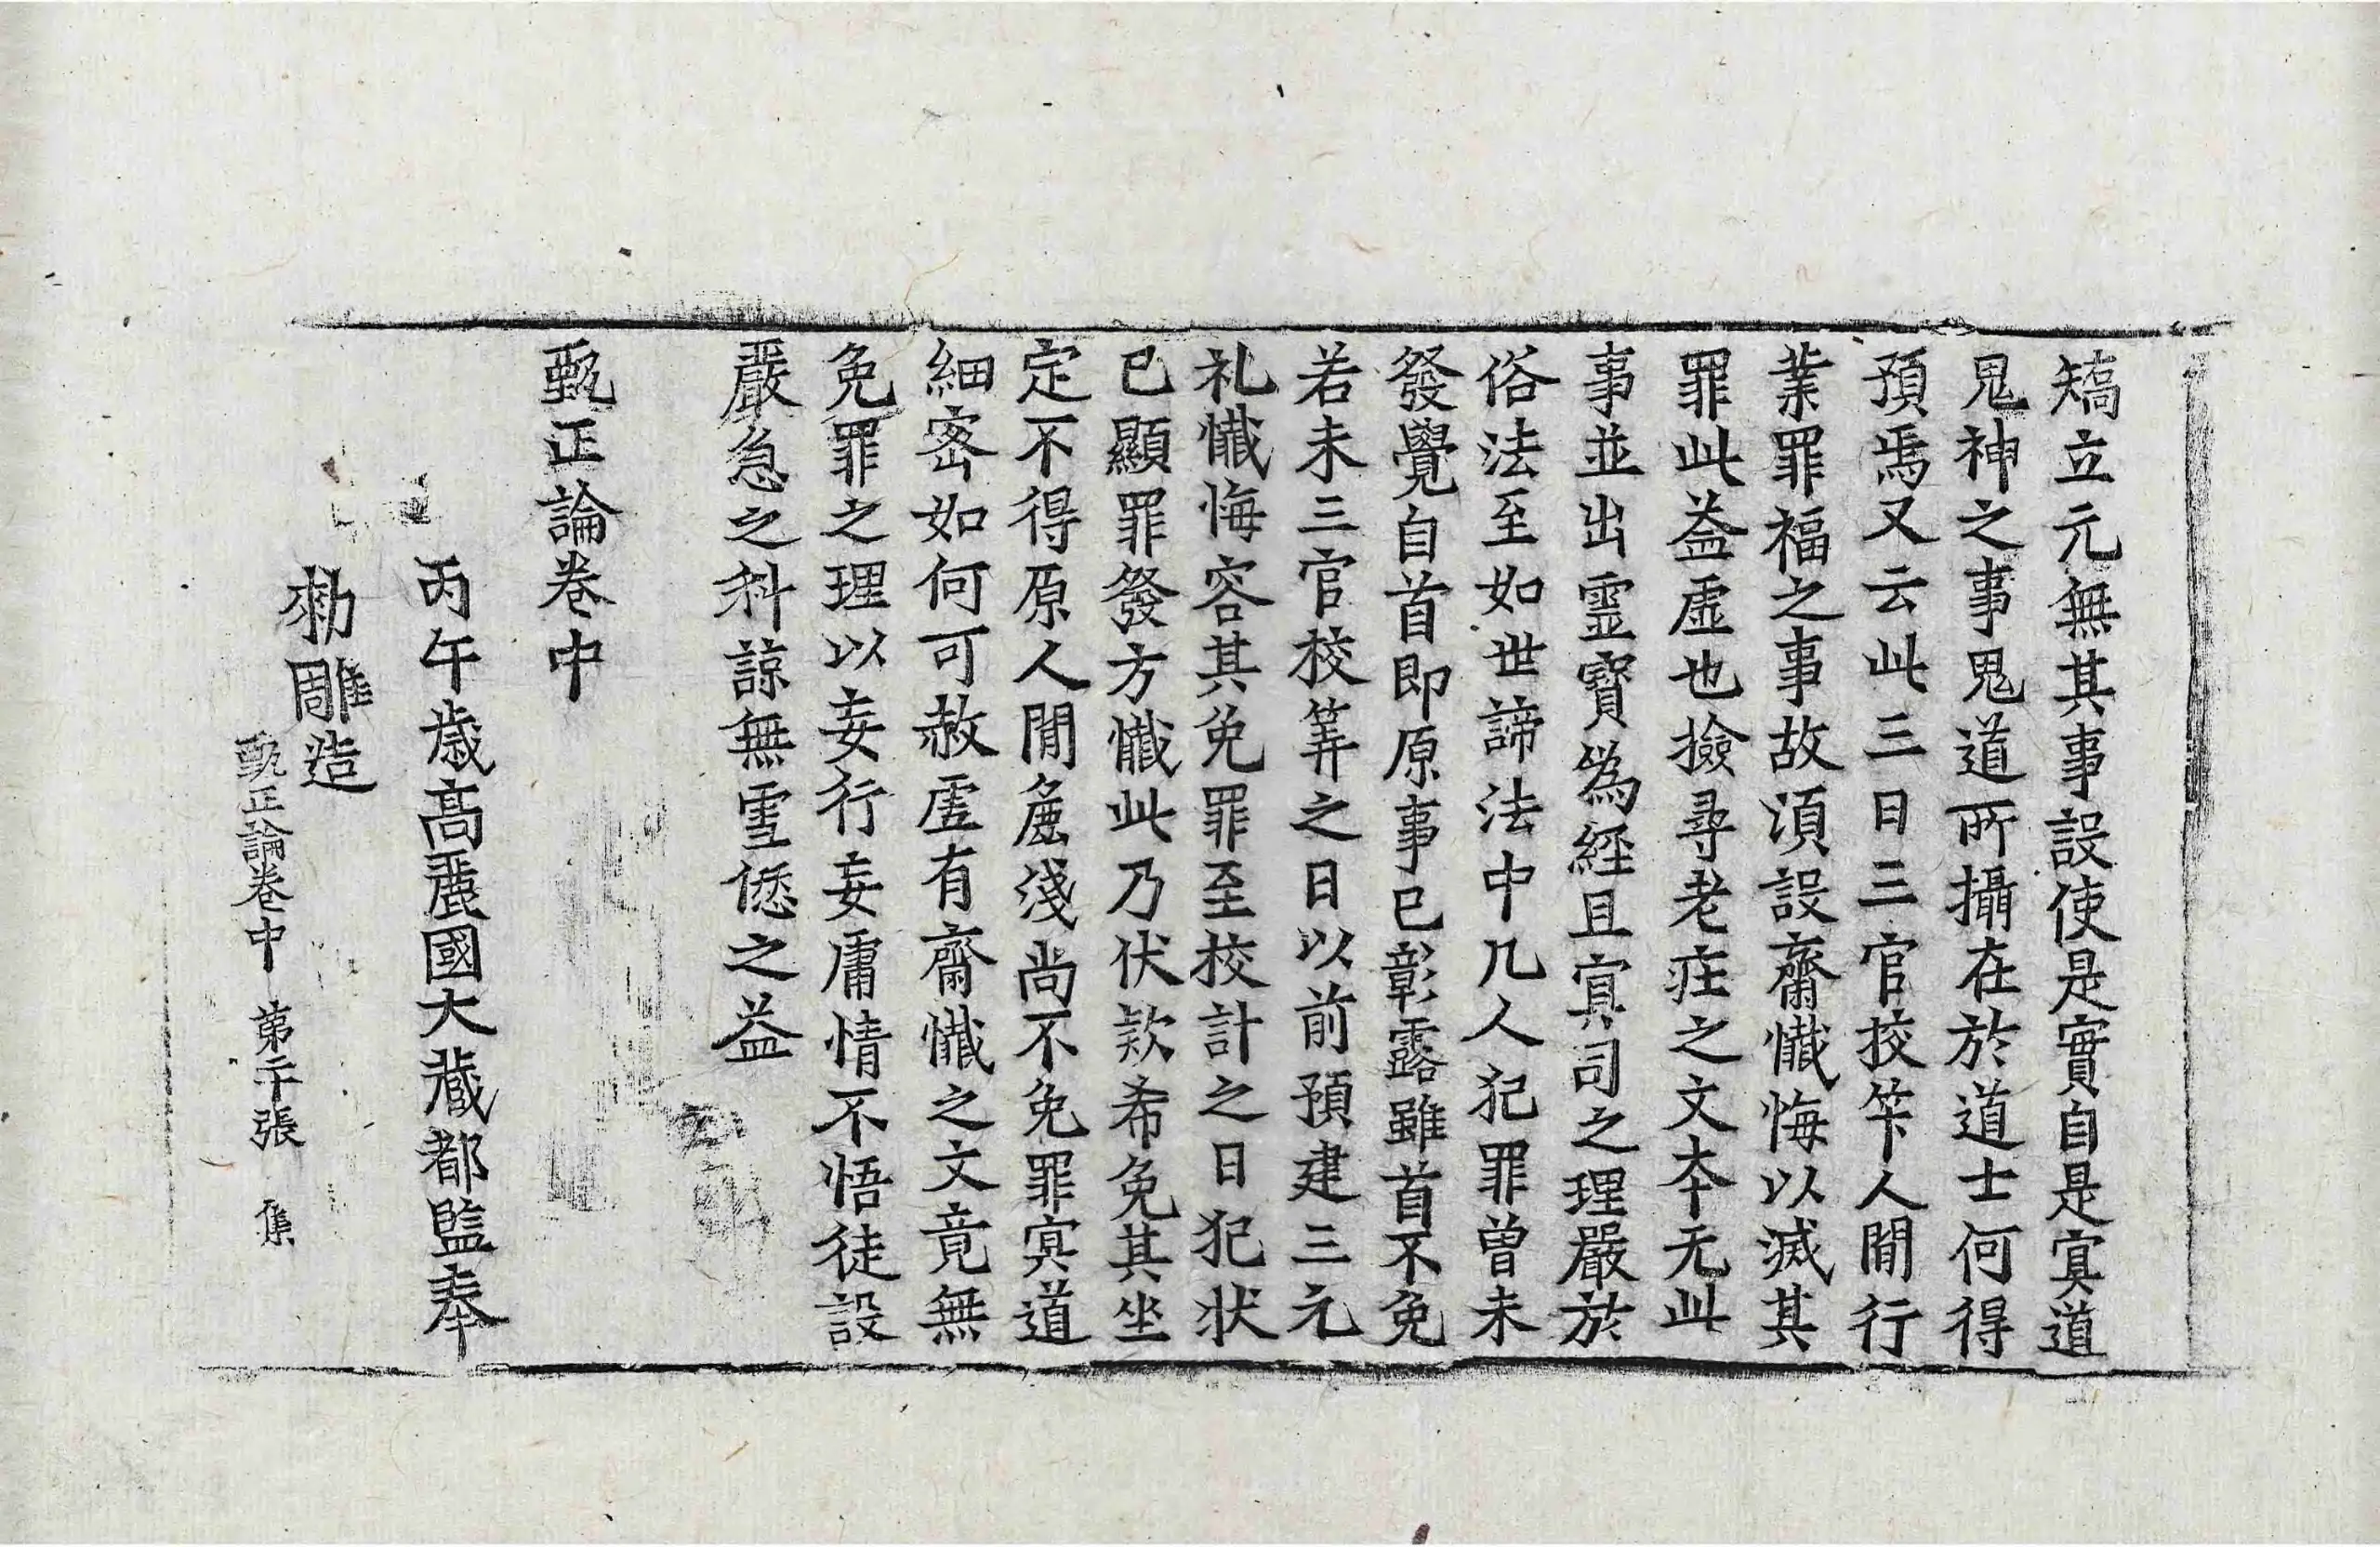 矯立元無其事設使是實自是㝠道
鬼神之事鬼道所攝在於道士何得
預焉又云此三日三官挍笇人閒行
業罪福之事故湏設齋懺悔以滅其
罪此益虛也撿尋老庄之文夲无此
事並出霊寶僞經且㝠司之理嚴於
俗法至如世諦法中凡人犯罪曾未
發覺自首即原事已彰露雖首不免
若未三官校筭之日以前預建三元
礼懺悔容其免罪至校計之日犯狀
已顯罪發方懺此乃伏欵希免其坐
定不得原人閒麁淺尚不免罪㝠道
細宻如何可赦虛有齋懺之文竟無
免罪之理以妄行妄庸情不悟徒設
嚴急之科諒無雪㥶之益
甄正論卷中
丙午歲高麗國大藏都監奉
勑雕造
甄正論卷中 第二十張 集